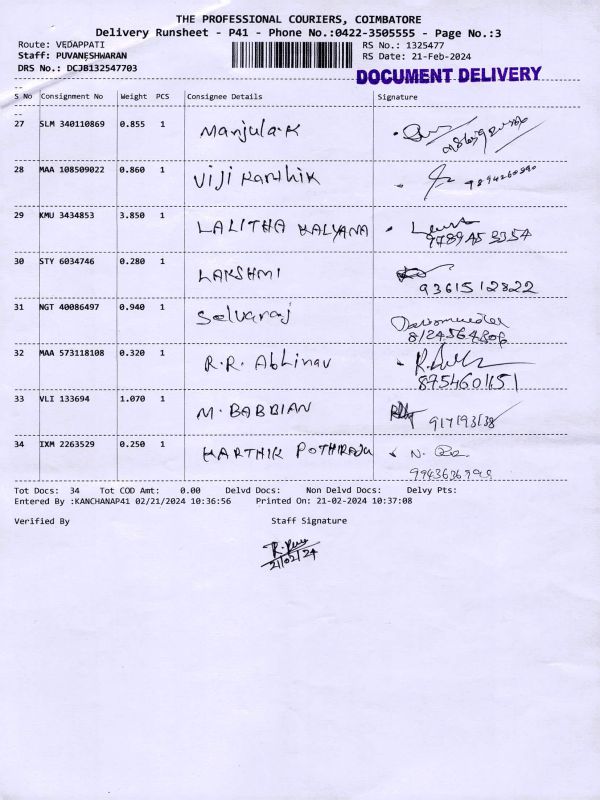 THE PROFESSIONAL COURIERS, COIMBATORE
Delivery Runsheet - P41 - Phone No.:0422-3505555 - Page No.:3
Route: VEDAPPATI RS No.: 1325477
Staff: PUVANESHWARAN RS Date: 21-Feb-2024
DRS No.: DCJB132547703
DOCUMENT DELIVERY
--
S No Consignment No Weight PCS Consignee Details Signature
--
27 SLM 340110869 0.855 1 Manjula.K
28 MAA 108509022 0.860 1 Viji Karthik 9894260890
29 KMU 3434853 3.850 1 LALITHA KALYANA
9789453354
30 STY 6034746 0.280 1 LAKSHMI
9361512822
31 NGT 40086497 0.940 1 Selvaraj
8124564806
32 MAA 573118108 0.320 1 R.R. Abhinav
8754601151
33 VLI 133694 1.070 1 M. BABBIAN
34 IXM 2263529 0.250 1 KARTHIK POTHIRAJU
Tot Docs: 34 Tot COD Amt: 0.00 Delvd Docs: Non Delvd Docs: Delvy Pts:
Entered By :KANCHANAP41 02/21/2024 10:36:56 Printed On: 21-02-2024 10:37:08
Verified By Staff Signature
21/02/24